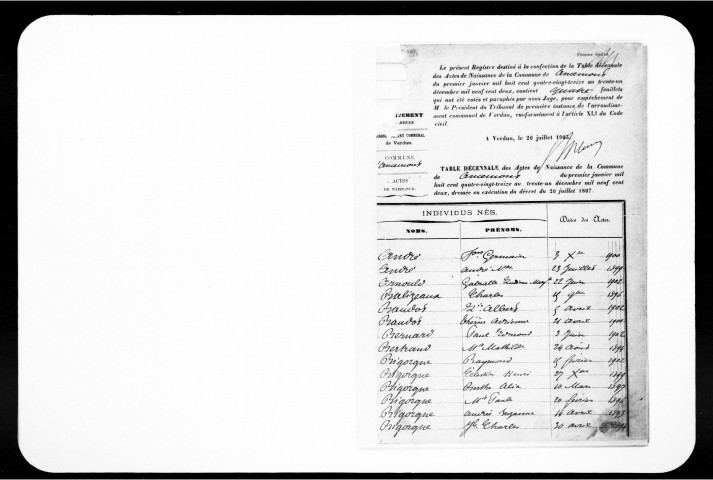 Premier feuillet
Le présent Registre destiné à la confection de la Table décennale
des Actes de Naissance de la Commune de Ancemont
du premier janvier mil huit cent quatre-vingt-treize au trente-un
décembre mil neuf cent deux, contient quatre feuillets
qui ont été cotés et paraphés par nous Juge, pour empêchement de
M. le Président du Tribunal de première instance de l'arrondisse-
ment communal de Verdun, conformément à l'article XLI du Code
civil.
A Verdun, le 20 juillet 1903
de Verdun.
COMMUNE
Ancemont
ACTES
DE NAISSANCE.
TABLE DÉCENNALE des Actes de Naissance de la Commune
de Ancemont du premier janvier mil
huit cent quatre-vingt-treize au trente-un décembre mil neuf cent
deux, dressée en exécution du décret du 20 juillet 1807.
INDIVIDUS NÉS.
Dates des Actes.
NOMS. PRÉNOMS.
André Germain 3 Xbre 1900
André André 23 Juillet 1899
Arnould Gabrielle 22 Juin 1902
Balizeaux Charles 15 9bre 1896
Baudot Albert 5 avril 1902
Baudot Thérèse Adrienne 21 avril 1900
Bernard Paul Edmond 3 Juin 1902
Bertrand Mie Mathilde 24 Août 1894
Bigorgne Raymond 15 février 1902
Bigorgne Célestin Henri 27 Xbre 1899
Bigorgne Alix 10 Mars 1897
Bigorgne Mie Paule 20 février 1896
Bigorgne André Suzanne 14 avril 1895
Bigorgne Charles 30 avril